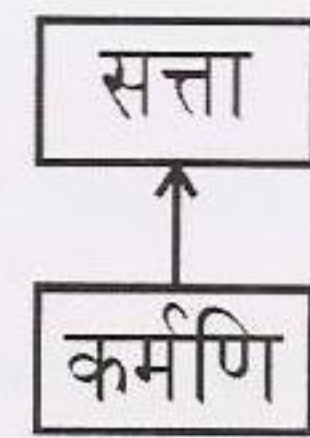 सत्ता
कर्मणि